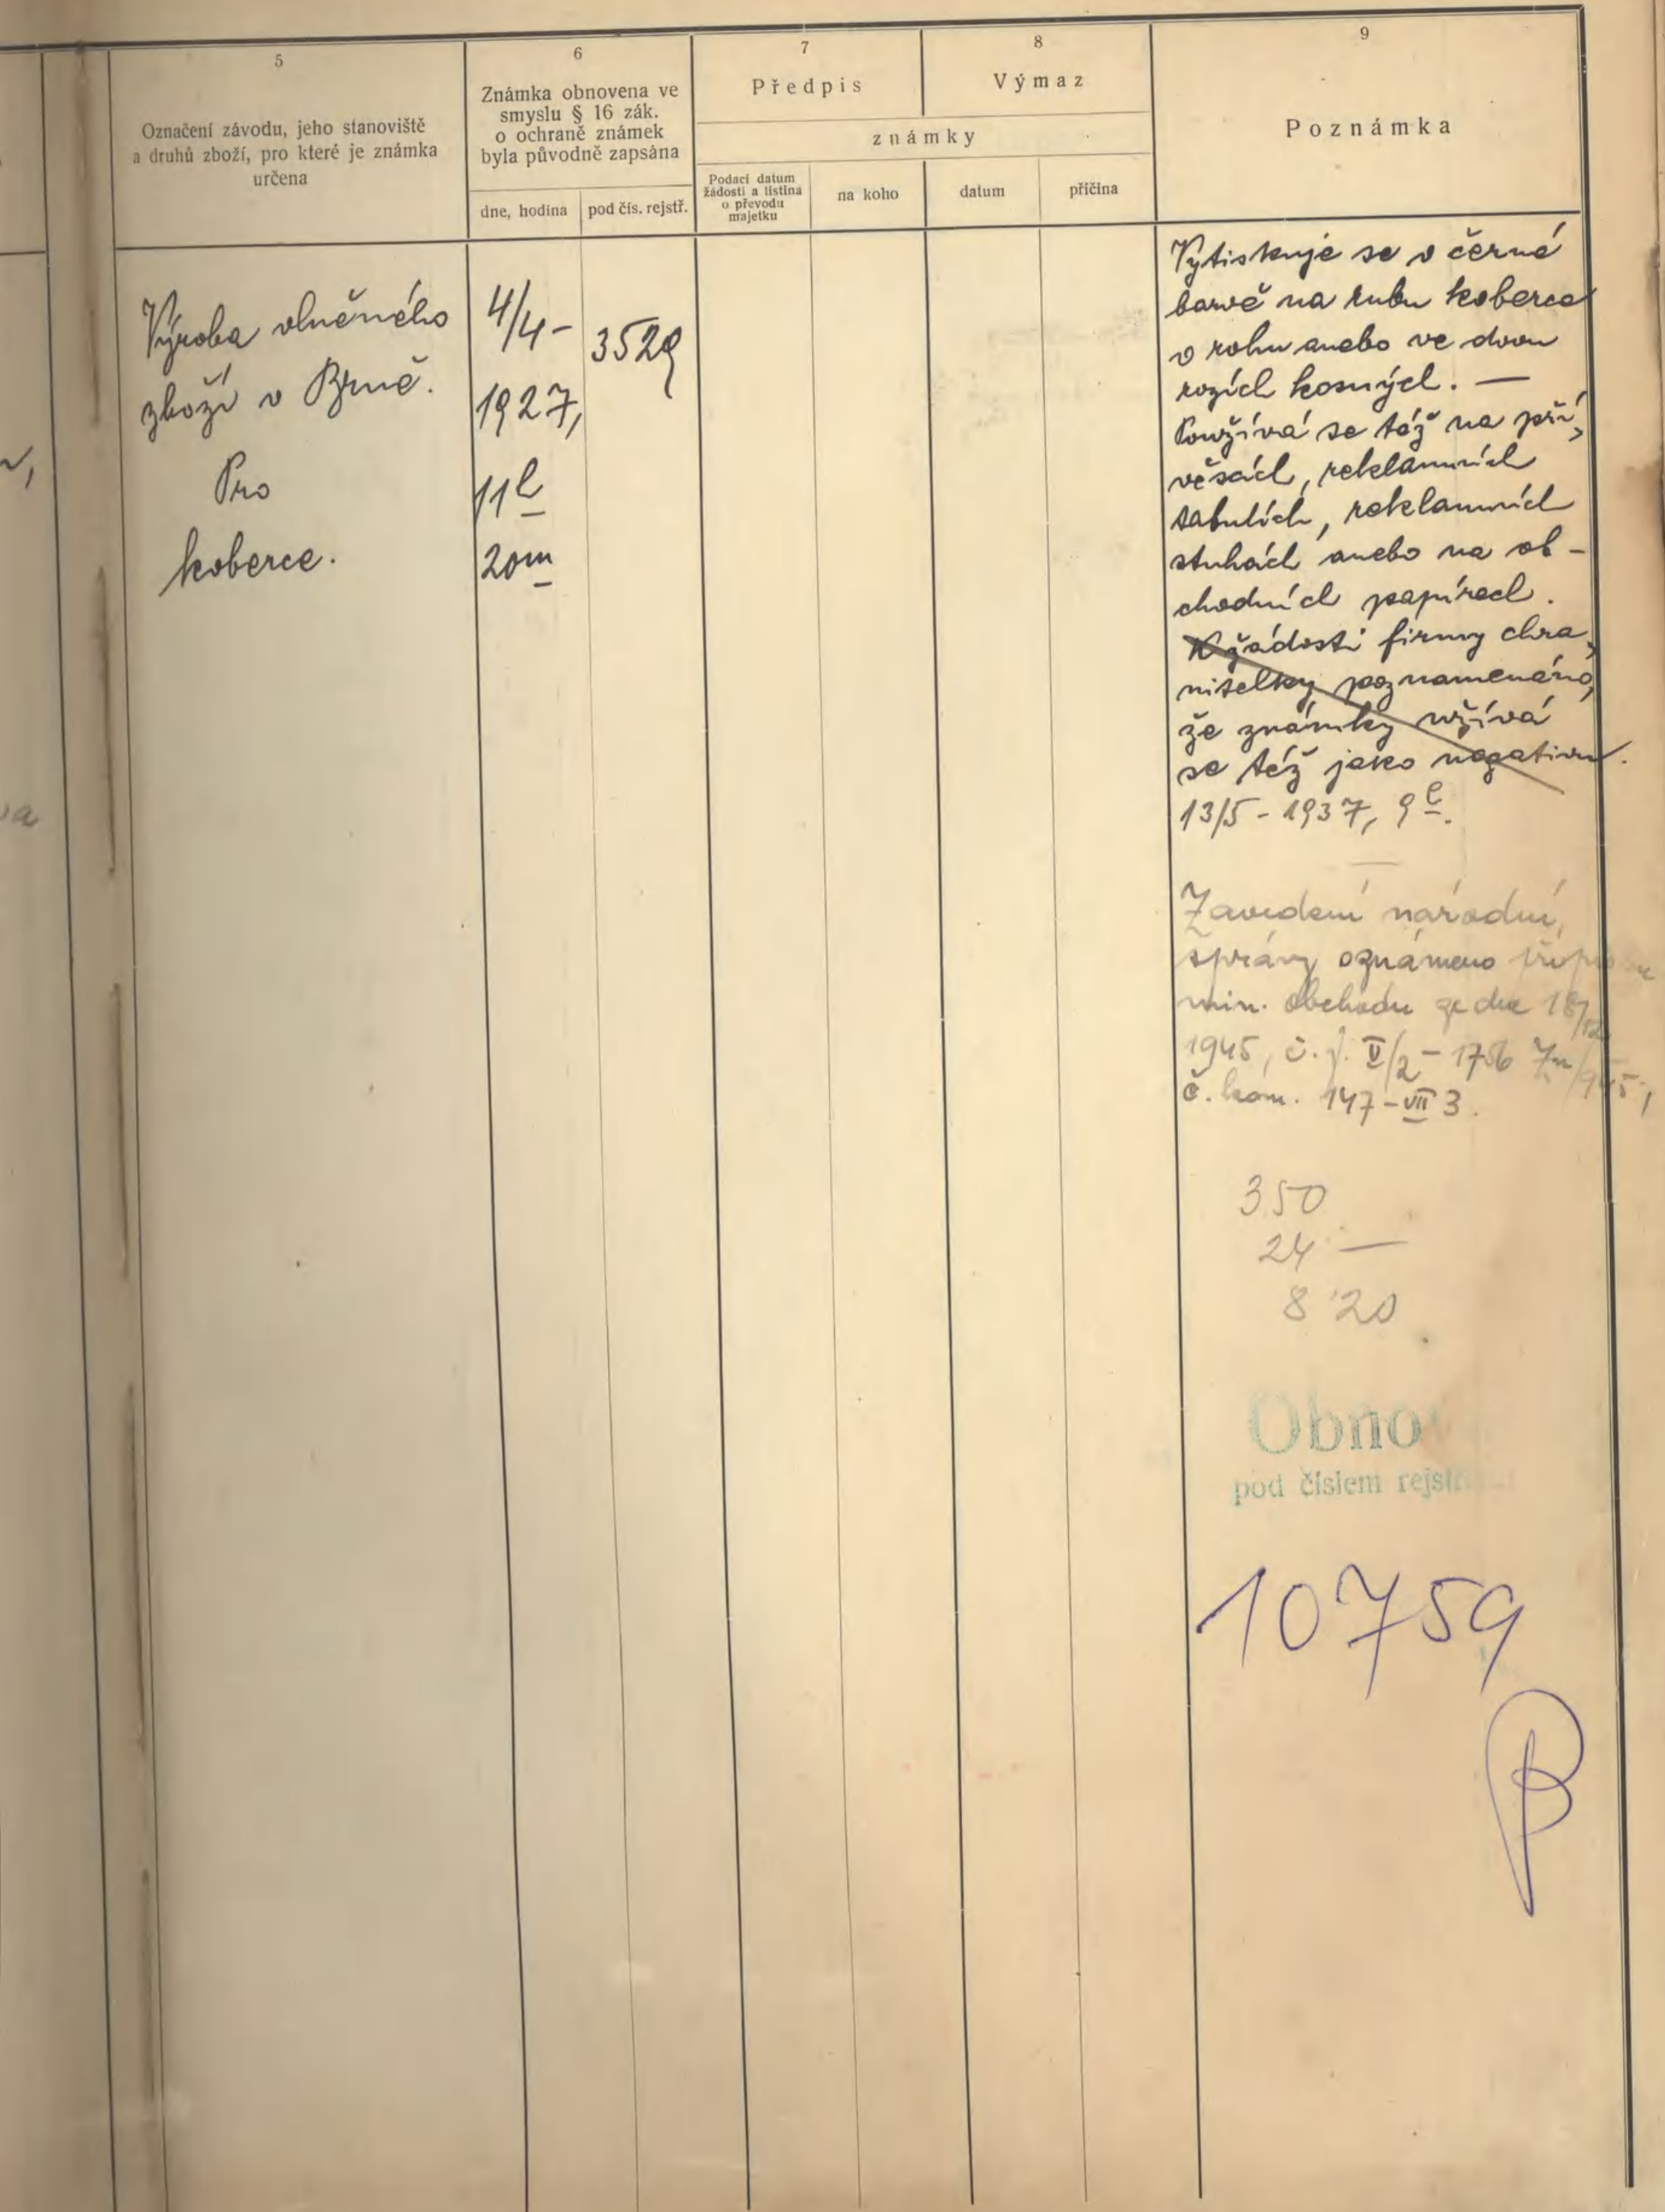 5
Označení závodu, jeho stanoviště
a druhů zboží, pro které je známka
určena
6
Známka obnovena ve
smyslu § 16 zák.
o ochraně známek
byla původně zapsána
dne, hodina
pod čís. rejstř.
7
Předpis
8
Výmaz
známky
Podací datum
žádosti a listina
o převodu
majetku
na koho
datum
příčina
9
Poznámka
Výroba vlněného
zboží v Brně.
Pro
koberce.
4/4-
1927,
11h
20m
3529
Vytiskuje se v černé
barvě na rubu koberce
v rohu anebo ve dvou
rozích kosných. —
Používá se též na pří,
věsách, reklamních
tabulích, reklamních
stuhách anebo na ob-
chodních papírech.
K žádosti firmy chra,
nitelky poznamenáno,
že známky užívá
se též jako negativu.
13/5 - 1937, 9h.
Zavedení národní
správy oznámeno
min. obchodu ze dne 18/12
1945, č. j. V/2 - 1756 Zn/945,
č. kom. 147-VII 3.
350
24 —
8'20
Obno
pod číslem rejst
10759